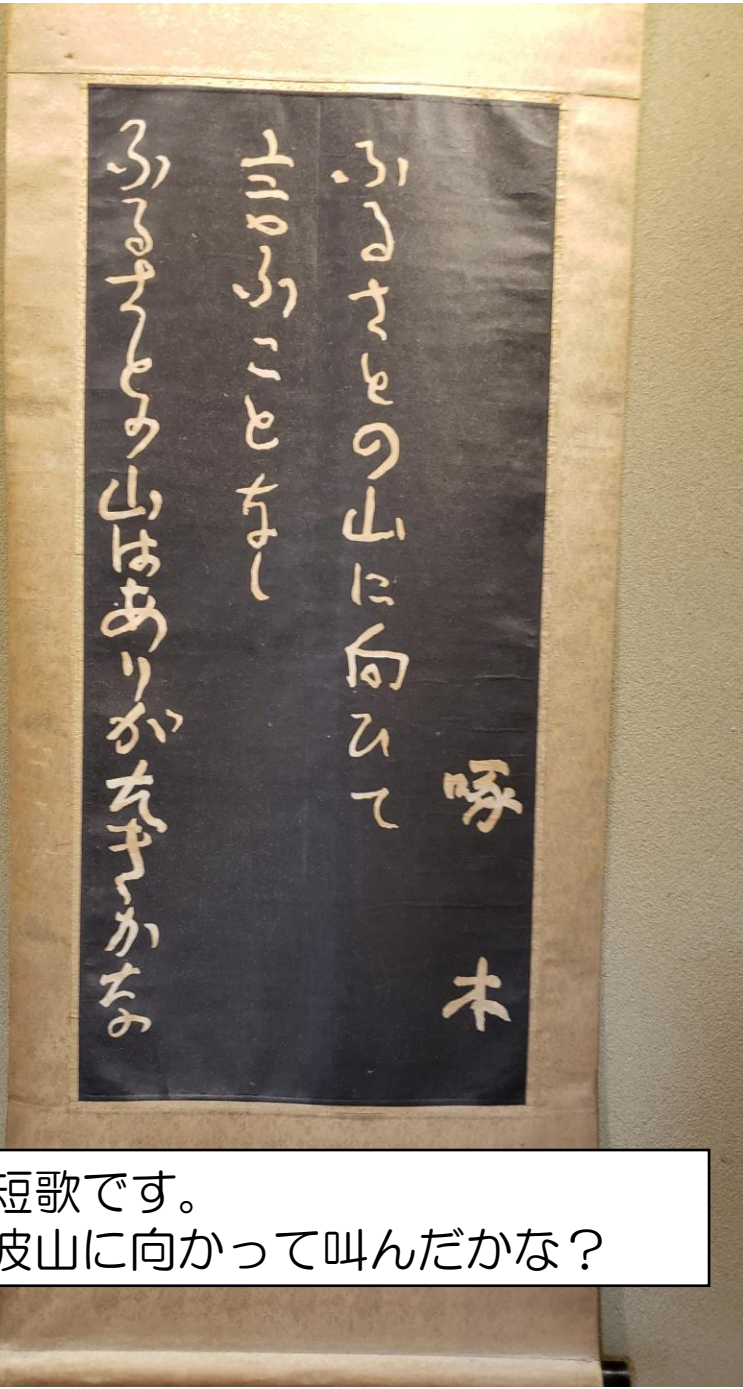 啄木
ふるさとの山に向ひて
言ふことなし
ふるさとの山はありがたきかな
短歌です。
波山に向かって叫んだかな？